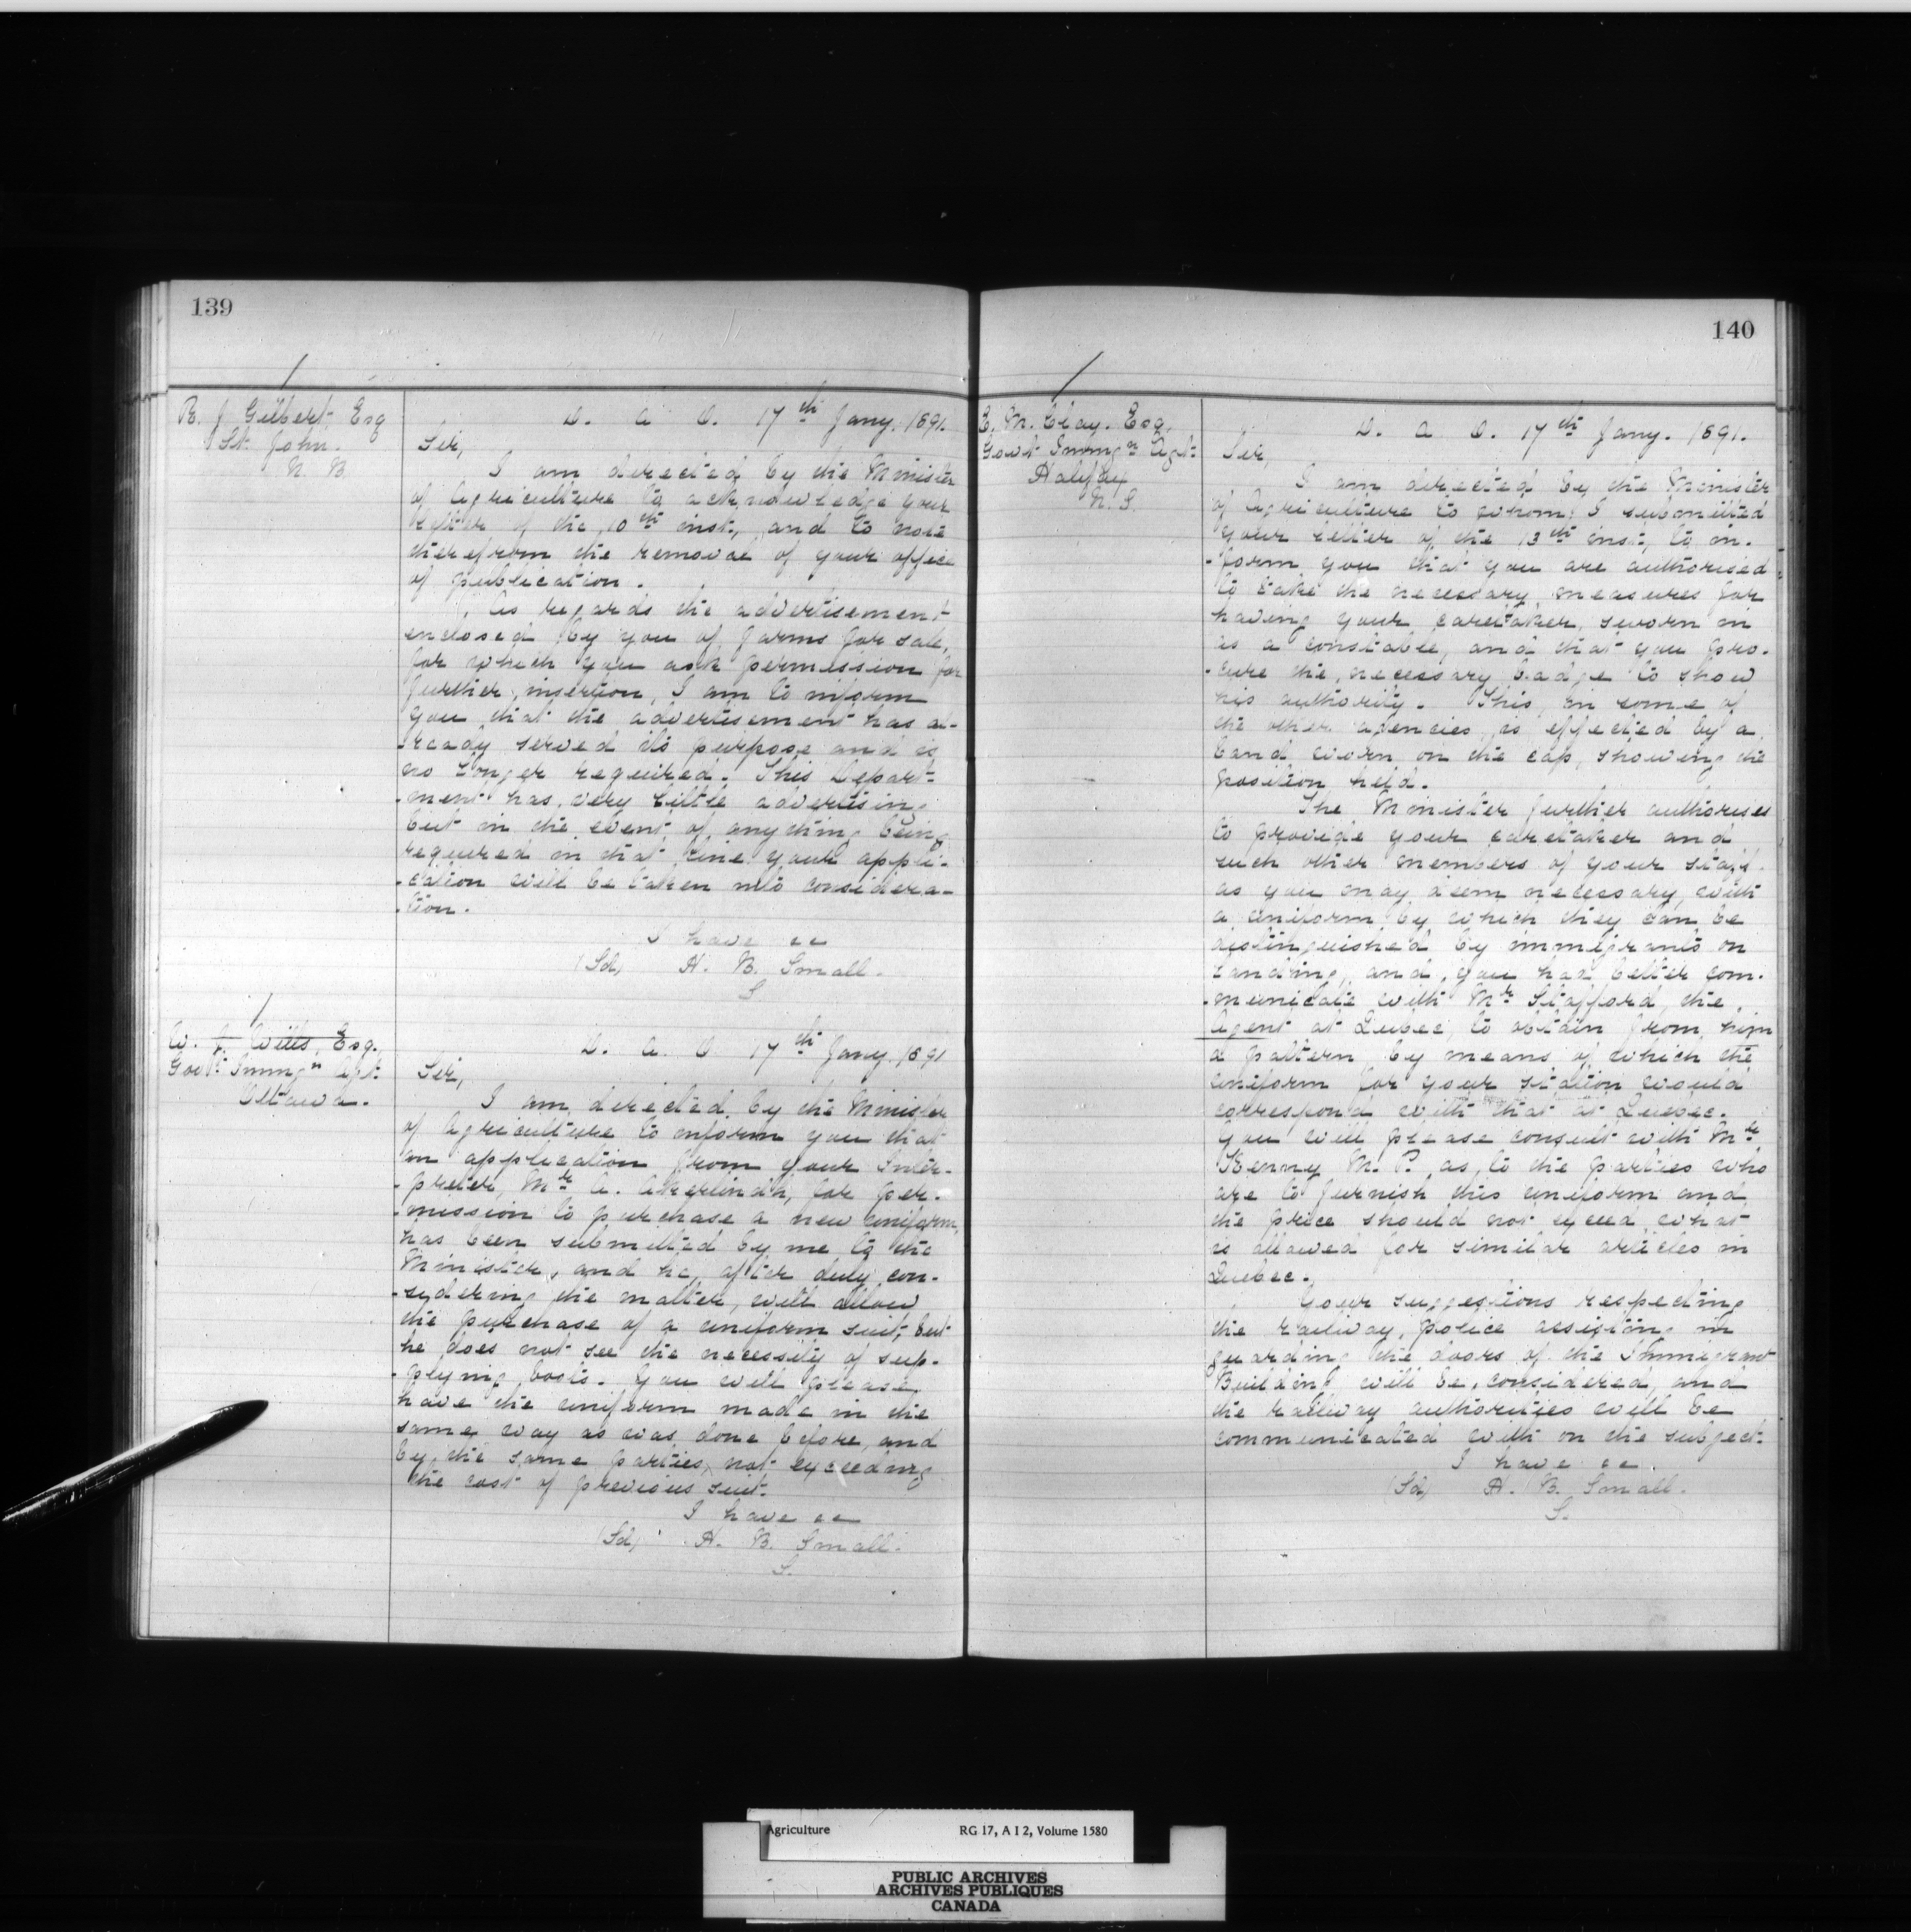 139
R. J. Gilbert Esq
St. John.
N. B.
D. A. O. 17th Jany. 1891.
Sir,
I am directed by the Minister
of Agriculture to acknowledge your
letter of the 10th inst., and to note
therefrom the removal of your office
of publication.
As regards the advertisement
enclosed by you of farms for sale,
for which you ask permission for
further insertion, I am to inform
you that the advertisement has al-
-ready served its purpose and is
no longer required. This Depart-
-ment has very little advertising
but in the event of anything being
required in that line your appli-
-cation will be taken into considera-
-tion.
I have &c
(Sd) H. B. Small.
S
W. J. Wills, Esq.
Govt. Immgn Agt.
Ottawa.
D. A. O 17th Jany. 1891
Sir,
I am directed by the Minister
of Agriculture to inform you that
an application from your Inter-
-preter, Mr A. Akerlindh, for per-
-mission to purchase a new uniform,
has been submitted by me to the
Minister, and he, after duly con-
-sydering the matter, will allow
the purchase of a uniform suit, but
he does not see the necessity of sup-
-plying boots. You will please
have the uniform made in the
same way as was done before, and
by the same parties, not exceeding
the cost of previous suit.
I have &c
(Sd) H. B. Small.
S.
140
E. M. Clay. Esq.
Govt Immgn Agt.
Halifax
N. S.
D. A. O. 17th Jany. 1891.
Sir,
I am directed by the Minister
of Agriculture to whom I submitted
your letter of the 13th inst, to in-
-form you that you are authorised
to take the necessary measures for
having your caretaker sworn in
as a constable, and that you pro-
-cure the necessary badge to show
his authority. This, in some of
the other agencies, is effected by a
band worn on the cap, showing the
position held.
The Minister further authorises
to provide your caretaker and
such other members of your staff
as you may deem necessary, with
a uniform by which they can be
distinguished by immigrants on
landing, and you had better com-
-municate with Mr Stafford, the
Agent at Quebec, to obtain from him
a pattern by means of which the
uniform for your station would
correspond with that at Quebec.
You will please consult with Mr
Kenny M. P. as to the parties who
are to furnish this uniform and
the price should not exceed what
is allowed for similar articles in
Quebec.
Your suggestions respecting
the railway police assisting in
guarding the doors of the Immigrant
Building will be considered, and
the railway authorities will be
communicated with on the subject.
I have &c.
(Sd) H. B. Small.
S.
Agriculture RG 17, A I 2, Volume 1580
PUBLIC ARCHIVES
ARCHIVES PUBLIQUES
CANADA